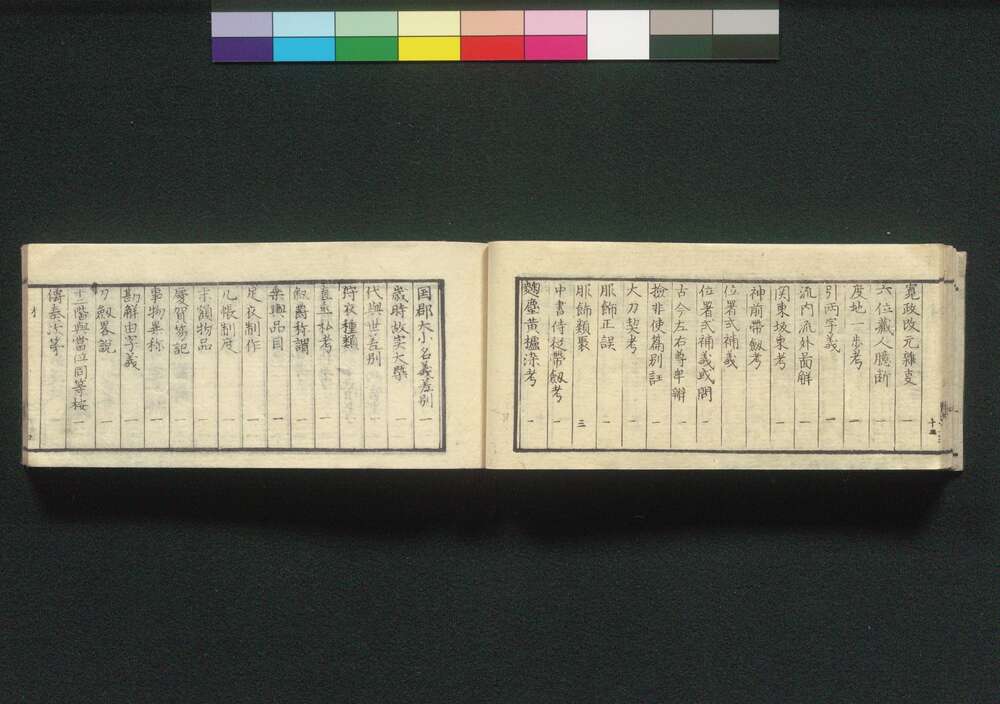 寛政改元雑支 一
六位蔵人臆断 一
度地一歩考 一
引両字義 一
流内流外図解
関東坂東考
神前帯劔考
位署式補義
位署式補義或問 一
古今左右尊卑辯
検非使篇別註 一
大刀契考 一
服飾正誤 一
服飾類聚 三
中書侍従帯劔考 一
麹塵黄櫨染考 一
国郡大小名義差別 一
歳時故実大槩 一
代與世差別 一
狩衣種類 一
直垂私考 一
叙爵称謂 一
乗輿品目 一
足衣制作 一
几帳制度 一
求領物品 一
慶賀笏記 一
事物異称 一
勘解由字義 一
刀劔畧説 一
十二階與當位同等桉 一